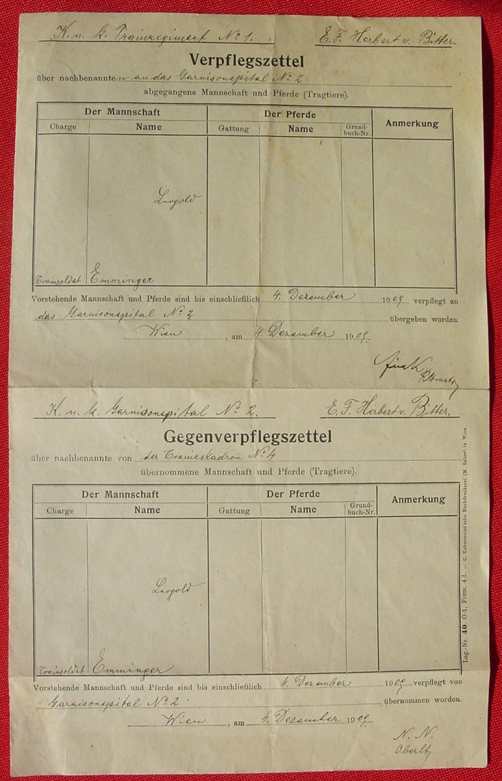 K. u. k. Trainregiment No 1. E. F. Herbert v. Bitter.
Verpflegszettel
über nachbenannte n an das Garnisonspital No 2
abgegangene Mannschaft und Pferde (Tragtiere).
Der Mannschaft Der Pferde Anmerkung
Charge Name Gattung Name Grund-buch-Nr.
Leopold
Trainsoldat Emminger
Vorstehende Mannschaft und Pferde sind bis einschließlich 4. Dezember 1909 verpflegt an
das Garnisonspital No 2 übergeben worden
Wien, am 4 Dezember 1909.
K. u. k. Garnisonspital No 2. E. F. Herbert v. Bitter.
Gegenverpflegszettel
über nachbenannte von der Traineskadron No 4
übernommene Mannschaft und Pferde (Tragtiere).
Der Mannschaft Der Pferde Anmerkung
Charge Name Gattung Name Grund-buch-Nr.
Leopold
Trainsoldat Emminger
Vorstehende Mannschaft und Pferde sind bis einschließlich 4. Dezember 1909 verpflegt von
Garnisonspital No 2 übernommen worden.
Wien, am 4. Dezember 1909.
N. N.
Oberlt
Lag.-Nr. 40